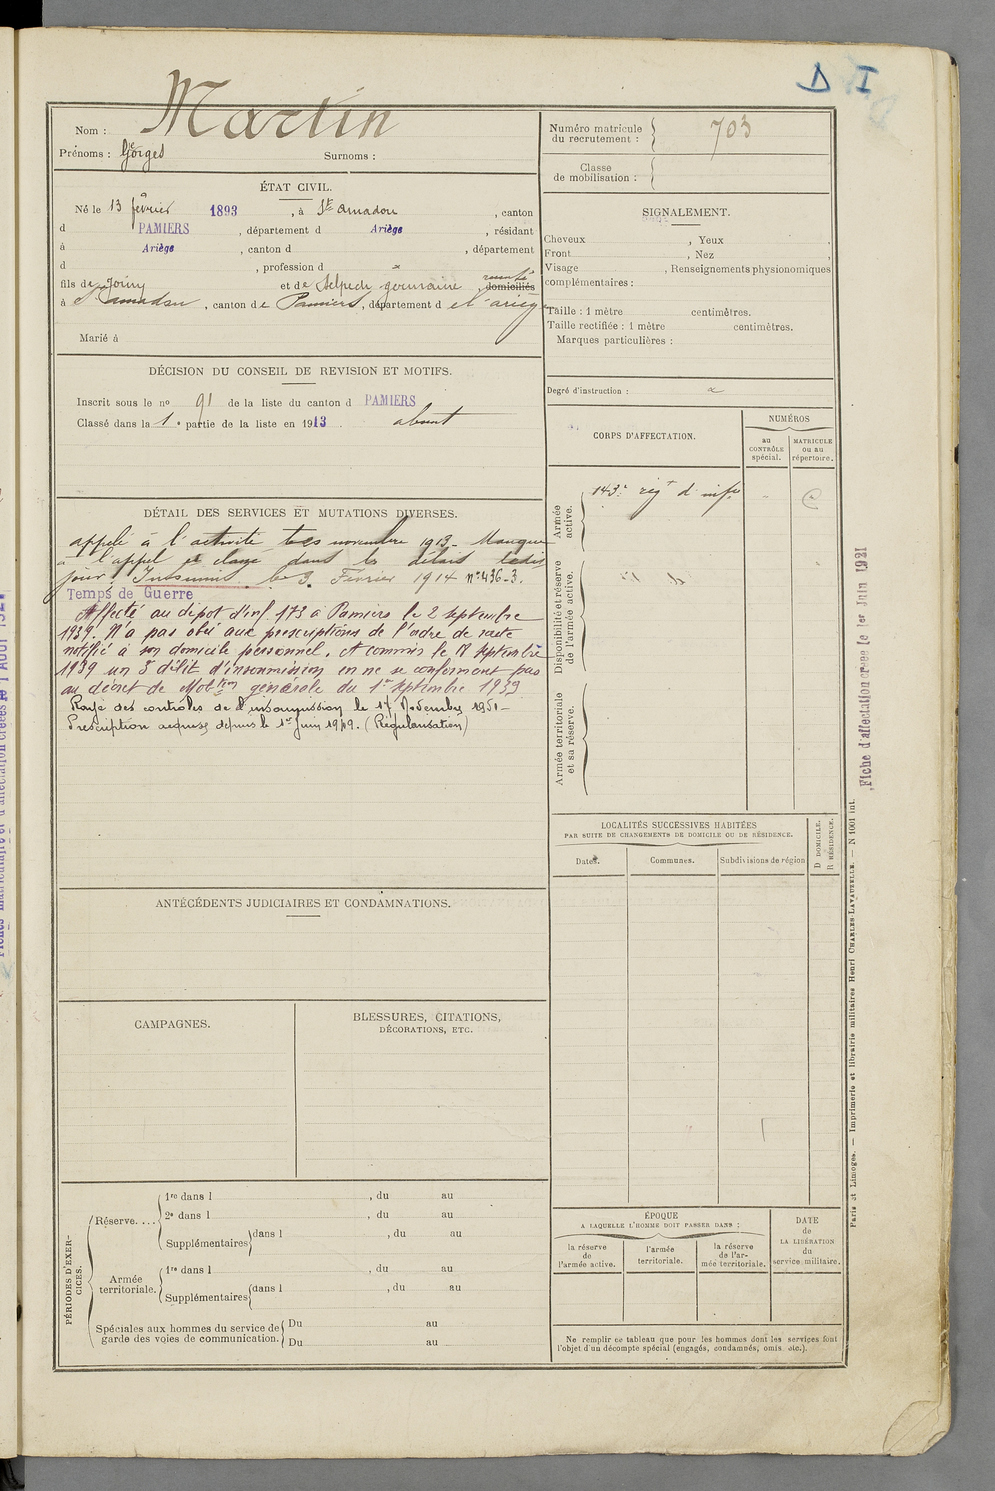 D I
Martin
Nom :
Prénoms : Georges Surnoms :
Numéro matricule
du recrutement : 703
Classe
de mobilisation :
ÉTAT CIVIL.
Né le 13 février 1893, à St Amadou, canton
d PAMIERS, département d Ariège, résidant
à Ariège, canton d , département
d , profession d
fils de et de germaine, domiciliés
à St Amadou, canton de Pamiers, département d e l'ariège
Marié à
SIGNALEMENT.
Cheveux , Yeux ,
Front , Nez ,
Visage , Renseignements physionomiques
complémentaires :
Taille : 1 mètre centimètres.
Taille rectifiée : 1 mètre centimètres.
Marques particulières :
Degré d'instruction :
DÉCISION DU CONSEIL DE REVISION ET MOTIFS.
Inscrit sous le no 91 de la liste du canton d PAMIERS
Classé dans la 1e partie de la liste en 1913. absent
CORPS D'AFFECTATION.
NUMÉROS
au
CONTRÔLE
spécial.
MATRICULE
ou au
répertoire.
Armée
active.
143e regt d'infie
Disponibilité et réserve
de l'armée active.
Armée territoriale
et sa réserve.
DÉTAIL DES SERVICES ET MUTATIONS DIVERSES.
appelé à l'activité novembre 1913. Manque
à l'appel dans les délais
jour. Insoumis le 3 Février 1914 n° 436-3.
Temps de Guerre
Affecté au dépot d'inf. 173 à Pamiers le 2 septembre
1939. N'a pas obéi aux prescriptions de l'ordre de route
notifié à son domicile personnel. A commis le 17 septembre
1939 un délit d'insoumission en ne se conformant pas
au décret de Mobtion générale du 1er septembre 1939
Rayé des contrôles de l'insoumission le 17 Novembre 1951-
Prescription acquise depuis le 1er Juin 1949. (Régularisation)
LOCALITÉS SUCCESSIVES HABITÉES
PAR SUITE DE CHANGEMENTS DE DOMICILE OU DE RÉSIDENCE.
Dates. Communes. Subdivisions de région
D DOMICILE.
R RÉSIDENCE.
ANTÉCÉDENTS JUDICIAIRES ET CONDAMNATIONS.
CAMPAGNES.
BLESSURES, CITATIONS,
DÉCORATIONS, ETC.
PÉRIODES D'EXER-
CICES.
Réserve....
1re dans l , du au
2e dans l , du au
Supplémentaires dans l , du au
Armée
territoriale.
1re dans l , du au
Supplémentaires dans l , du au
Spéciales aux hommes du service de
garde des voies de communication.
Du au
Du au
ÉPOQUE
A LAQUELLE L'HOMME DOIT PASSER DANS :
la réserve
de
l'armée active.
l'armée
territoriale.
la réserve
de l'ar-
mée territoriale.
DATE
de
LA LIBÉRATION
du
service militaire.
Ne remplir ce tableau que pour les hommes dont les services font
l'objet d'un décompte spécial (engagés, condamnés, omis etc.).
Fiche d'affectation créée le 1er Juin 1921
Paris et Limoges. — Imprimerie et librairie militaires Henri CHARLES-LAVAUZELLE. — N 1001 int.